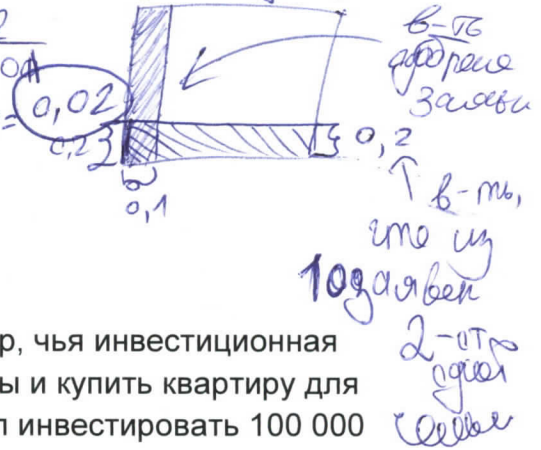 в-ть
одобрения
заявки
= 0,02
0,2
0,2
0,1
в-ть,
что из
10 заявок
2 - от
одной
семьи
р, чья инвестиционная
ы и купить квартиру для
л инвестировать 100 000